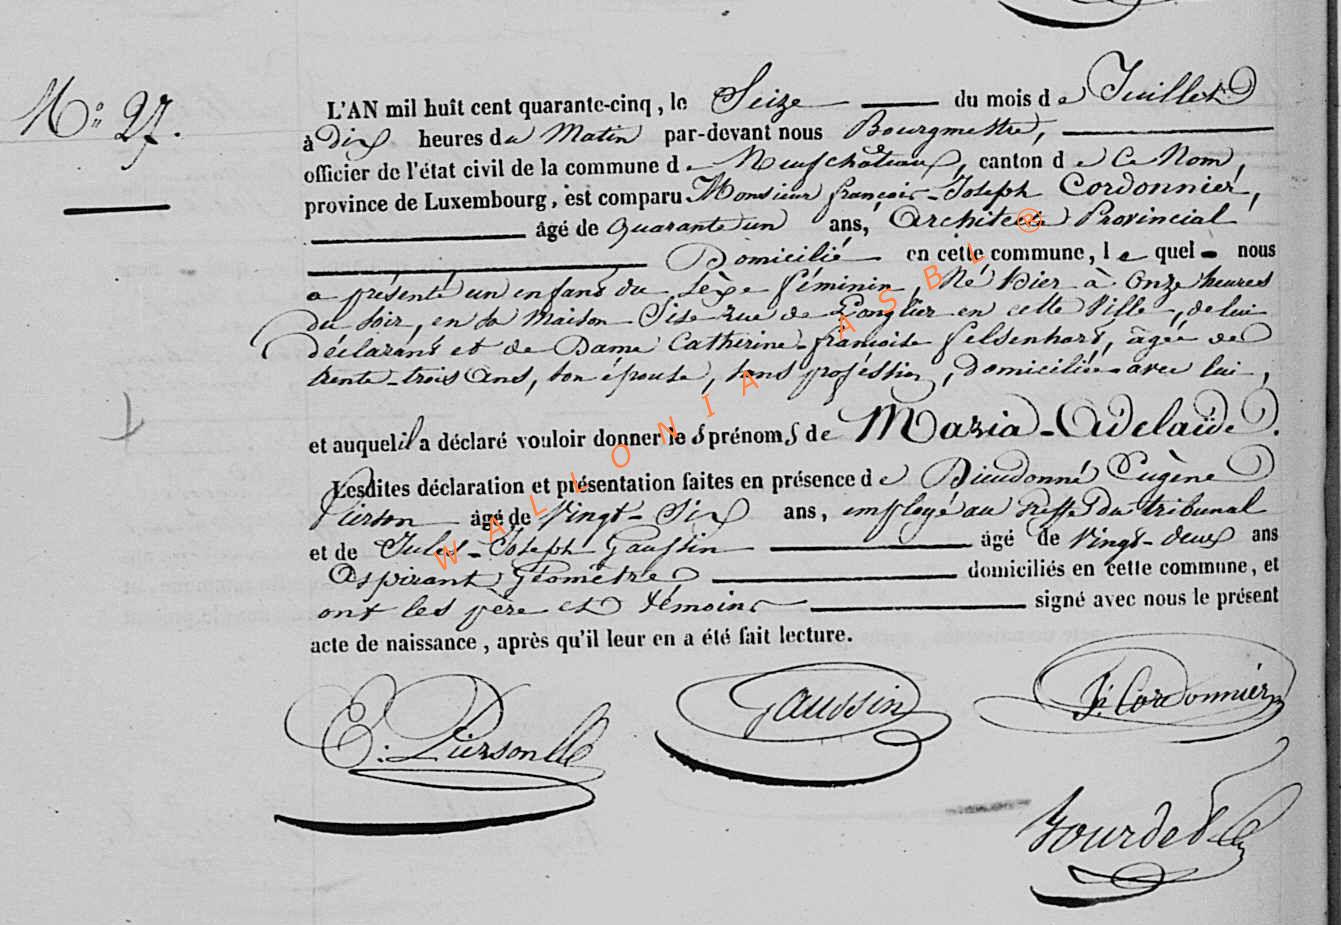 N.º 27.
L'AN mil huit cent quarante-cinq, le Seize du mois de Juillet
à dix heures du Matin par-devant nous Bourgmestre,
officier de l'état civil de la commune de Neufchâteau, canton de Ce Nom,
province de Luxembourg, est comparu Monsieur françois-Joseph Cordonnier,
âgé de Quarante un ans, Architecte Provincial
Domicilié en cette commune, lequel nous
a présenté un enfant du Sèxe féminin, Né hier à Onze heures
du Soir, en Sa Maison Sise rue de Longlier en cette Ville, de lui
déclarant et de Dame Catherine-françoise felsenhart, âgée de
trente-trois Ans, Son épouse, Sans profession, domiciliée avec lui,
et auquel il a déclaré vouloir donner les prénoms de Maria-Adelaïde.
Lesdites déclaration et présentation faites en présence de Dieudonné Eugène
Pierson âgé de Vingt-Six ans, employé au Greffe du tribunal
et de Jules-Joseph Gaussin âgé de Vingt-deux ans
Aspirant Géomètre domiciliés en cette commune, et
ont les père et témoins signé avec nous le présent
acte de naissance, après qu'il leur en a été fait lecture.
E. Pierson Gaussin f. Cordonnier
WALLONIA ASBL ®